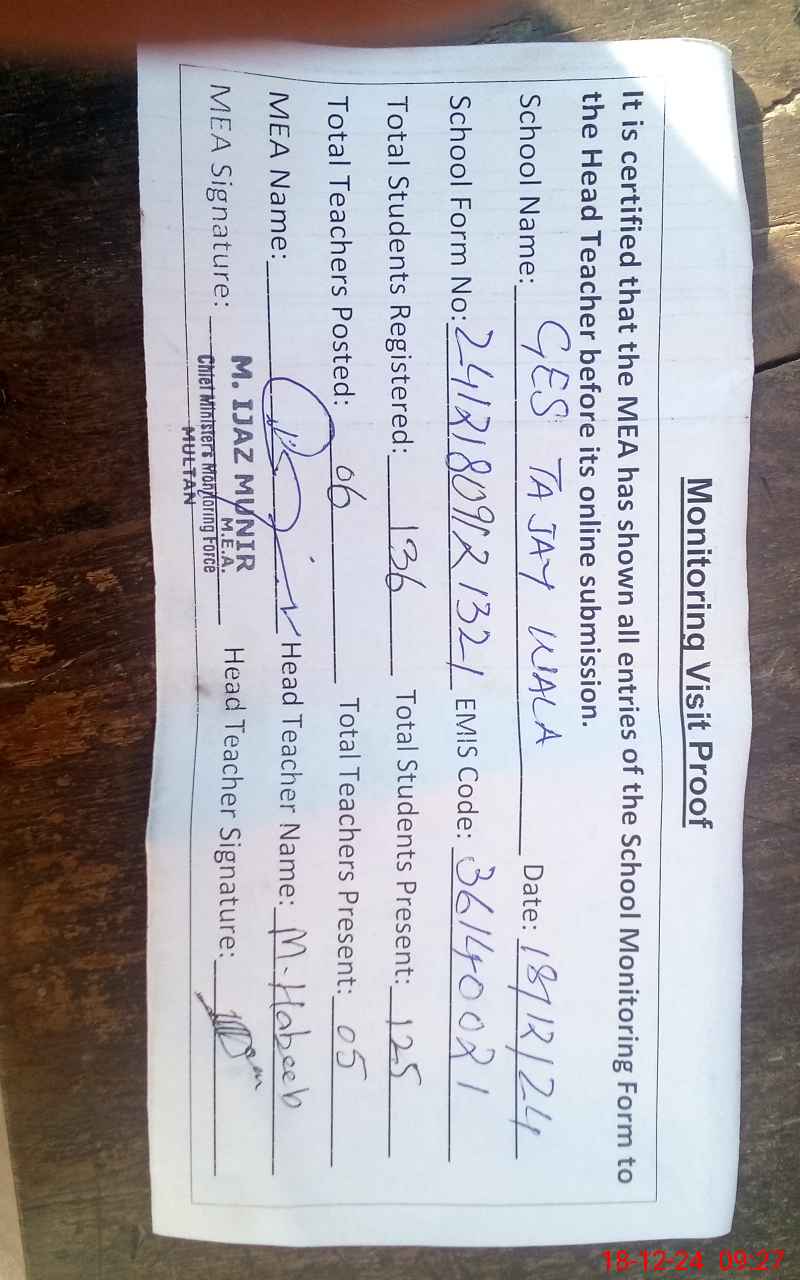 Monitoring Visit Proof
It is certified that the MEA has shown all entries of the School Monitoring Form to
the Head Teacher before its online submission.
School Name: GES TAJAY WALA Date: 18/12/24
School Form No: 24121809121321 EMIS Code: 36140021
Total Students Registered: 136 Total Students Present: 125
Total Teachers Posted: 06 Total Teachers Present: 05
MEA Name: Head Teacher Name: M. Habeeb
MEA Signature: Head Teacher Signature:
M. IJAZ MUNIR
M.E.A.
Chief Minister's Monitoring Force
MULTAN
18-12-24 09:27